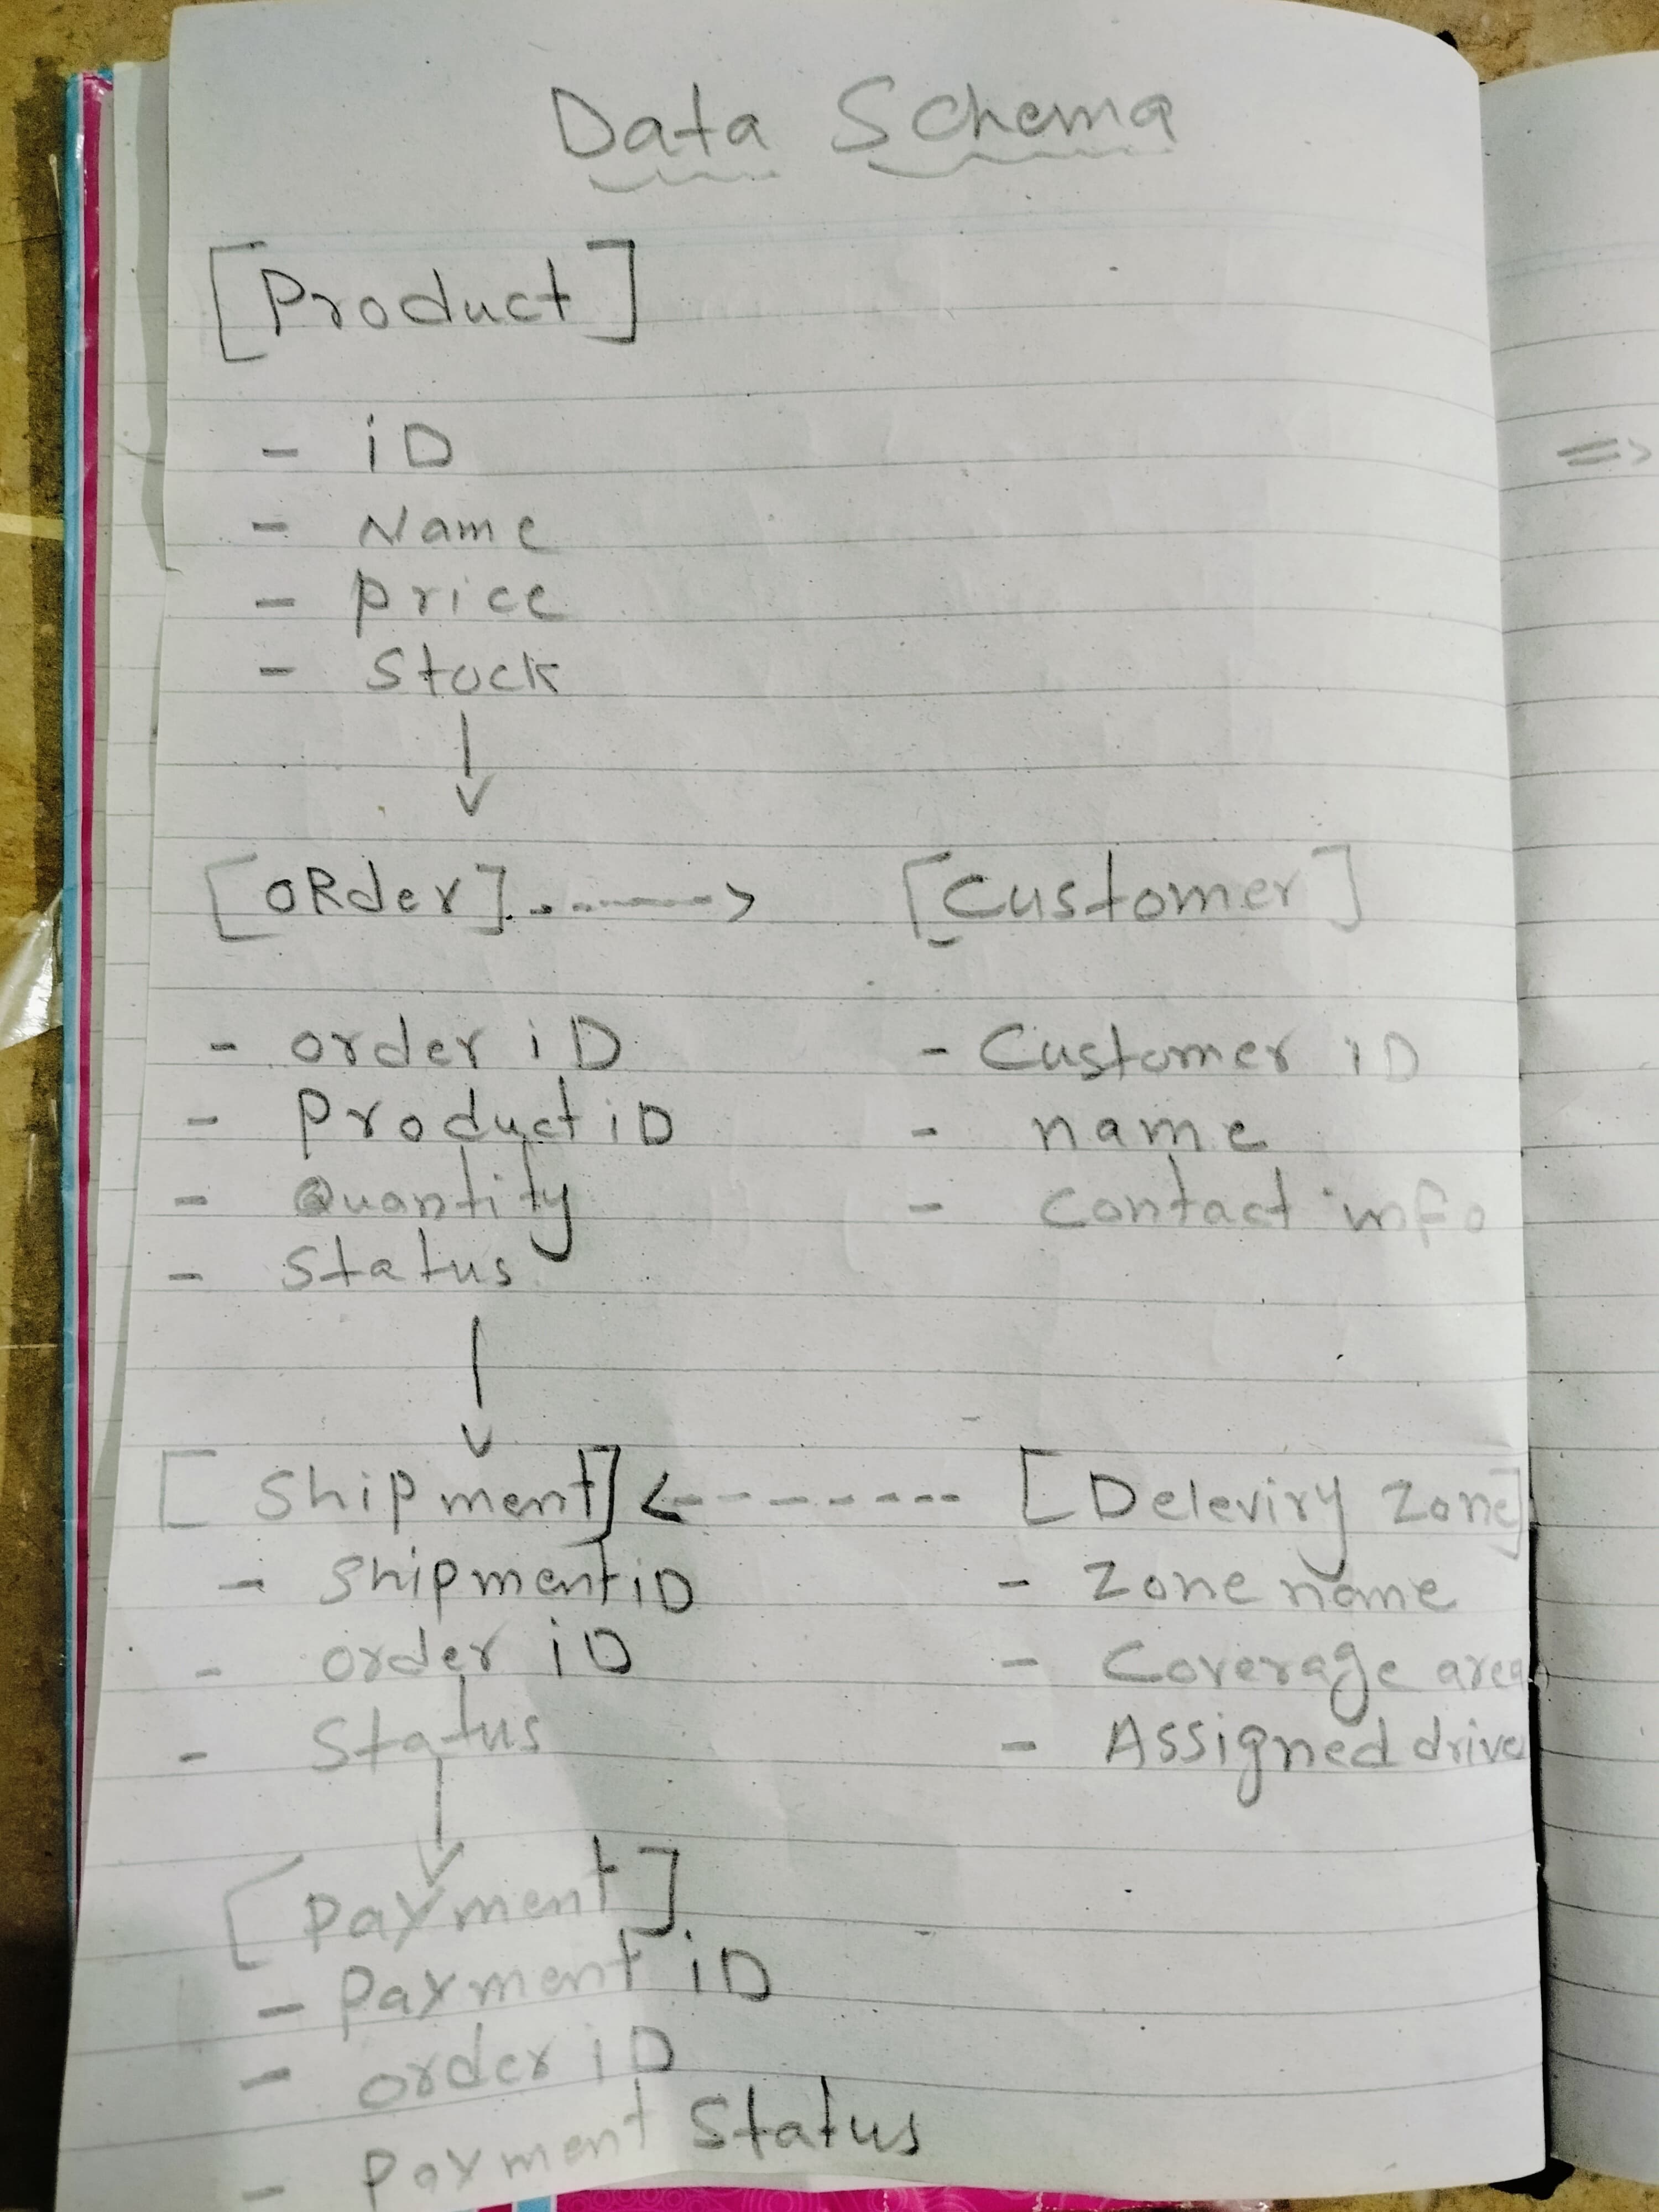 Data Schema
[Product]
- iD
- Name
- Price
- Stock
[ORder] -----> [Customer]
- order iD
- Product iD
- Quantity
- Status
- Customer iD
- name
- Contact info
[Shipment] <------- [Deleviry Zone]
- Shipment iD
- order iD
- Status
- Zone name
- Coverage area
- Assigned drive
[Payment]
- Payment iD
- order iD
- Payment Status
=>